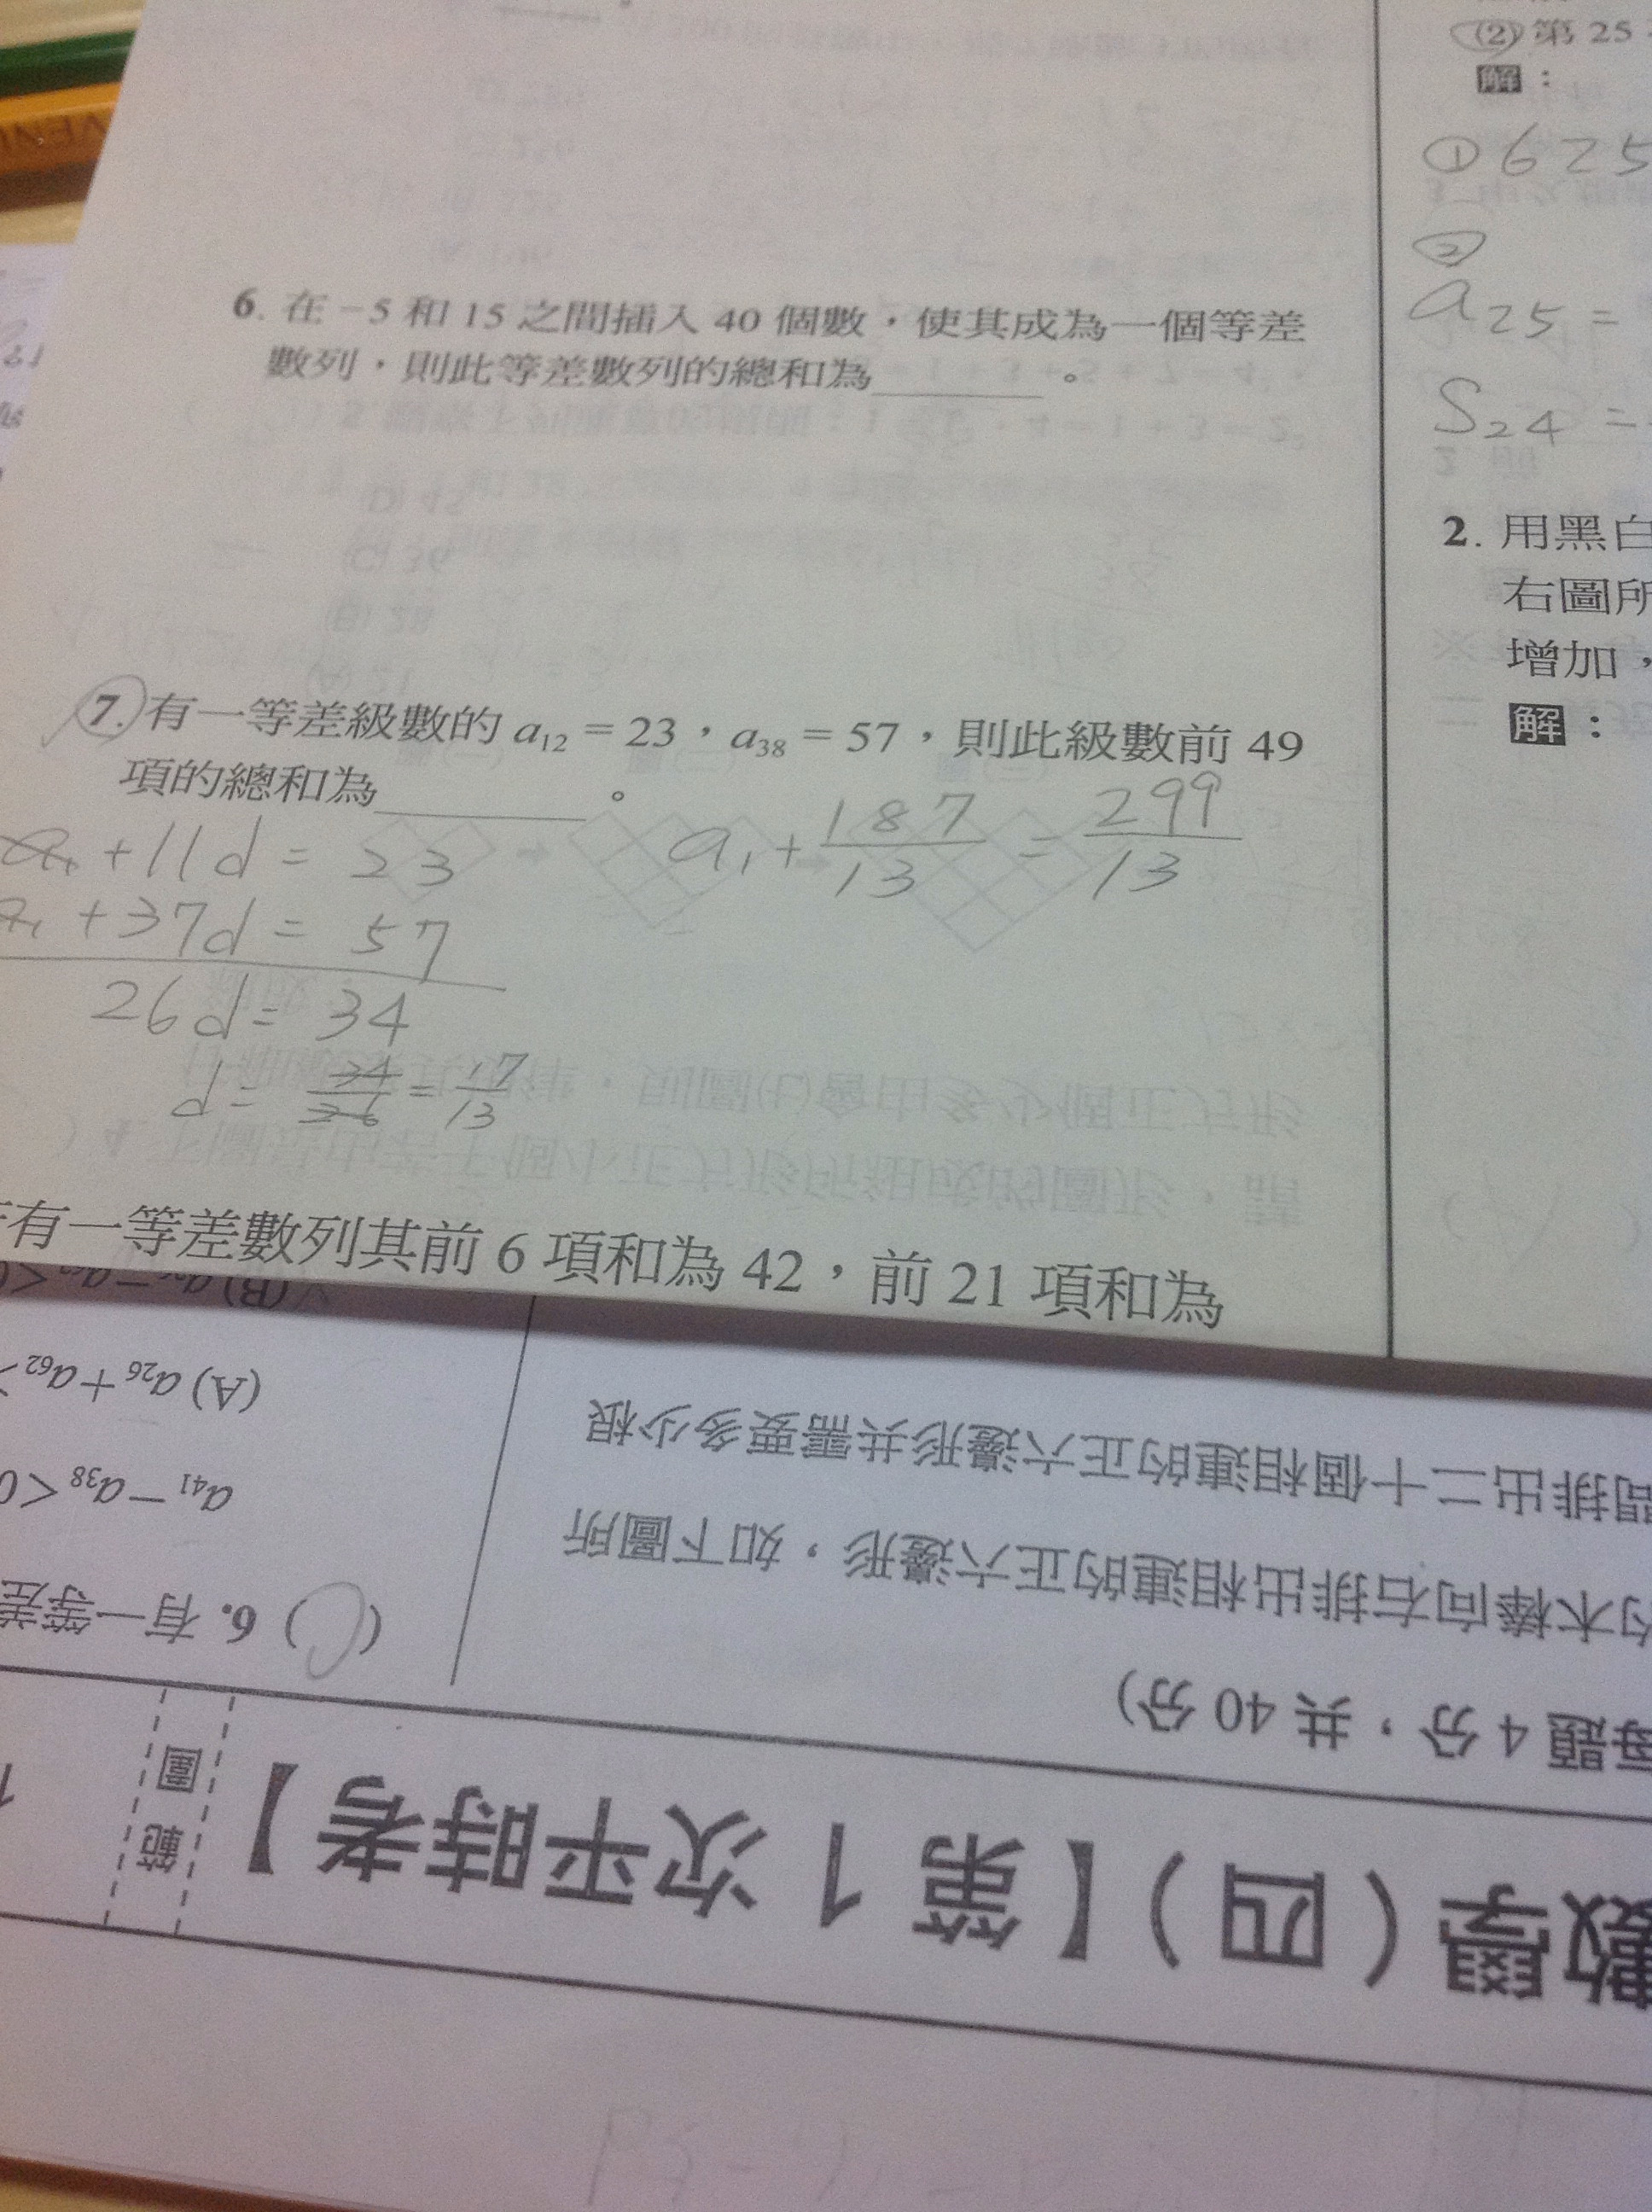 6. 在 −5 和 15 之間插入 40 個數，使其成為一個等差
數列，則此等差數列的總和為______。
7. 有一等差級數的 a₁₂ = 23，a₃₈ = 57，則此級數前 49
項的總和為______。
a₁ + 11d = 23
a₁ + 37d = 57
26d = 34
d = 34/26 = 17/13
a₁ + 187/13 = 299/13
有一等差數列其前 6 項和為 42，前 21 項和為
(2) 第 25
解：
① 625
②
a₂₅ =
S₂₄ =
2. 用黑白
右圖所
增加，
解：
數學（四）【第 1 次平時考】
範圍
每題 4 分，共 40 分)
木棒向右排出相連的正六邊形，如下圖所
問排出二十個相連的正六邊形共需要多少根
( C ) 6. 有一等差
a₄₁ − a₃₈ < 0
(A) a₂₆ + a₆₂
(B)